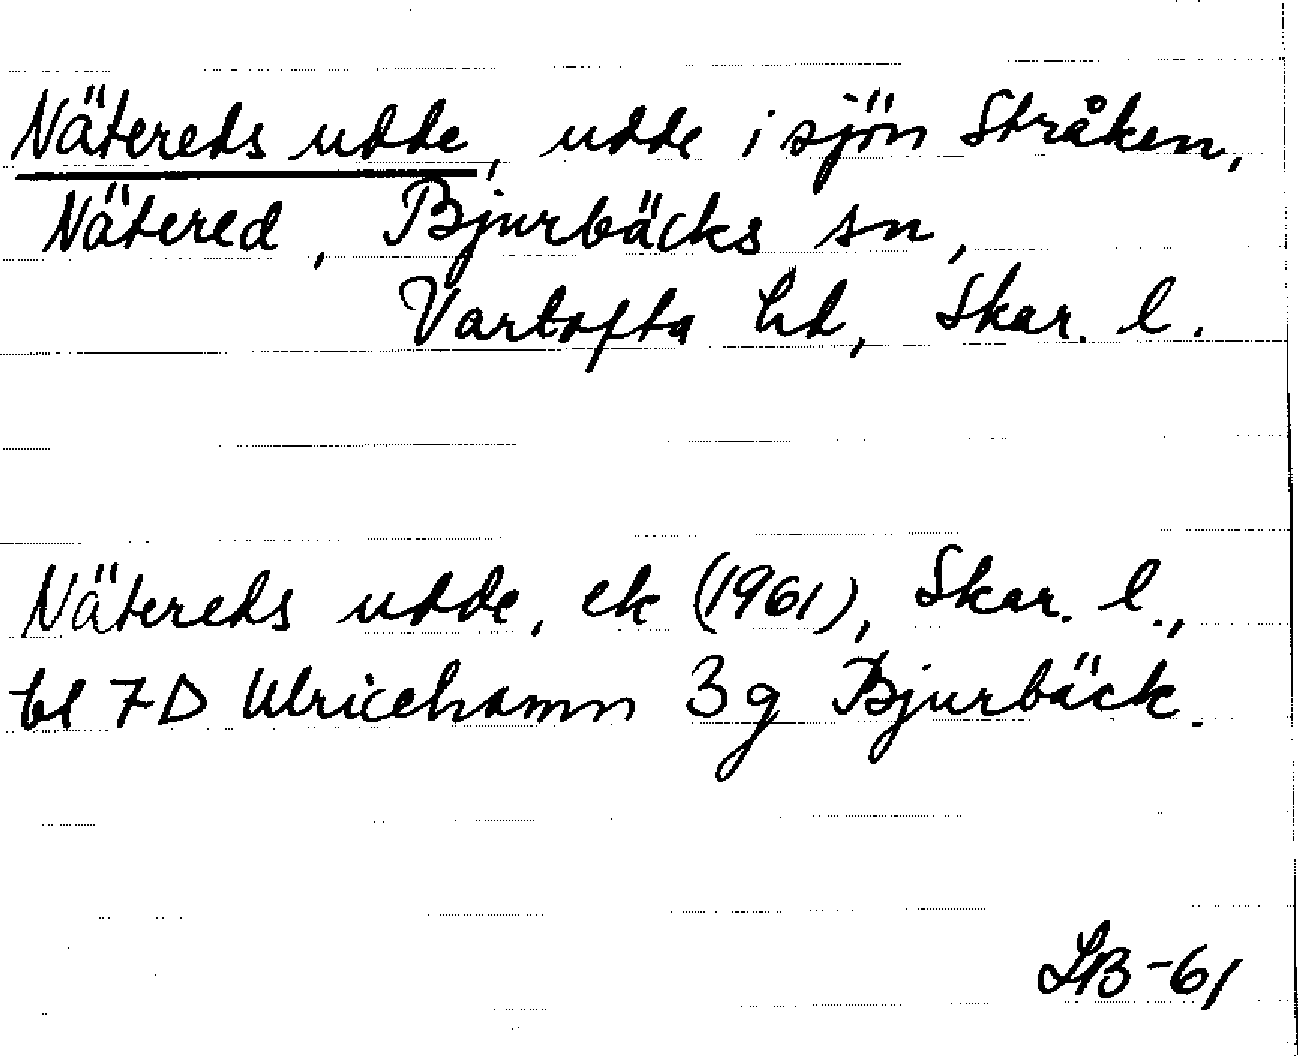 Nätereds udde, udde i sjön Stråken,
Nätered, Bjurbäcks sn,
Vartofta hd, Skar. l.
Nätereds udde, ek (1961), Skar. l.,
bl 7D Ulricehamn 3g Bjurbäck.
LB-61